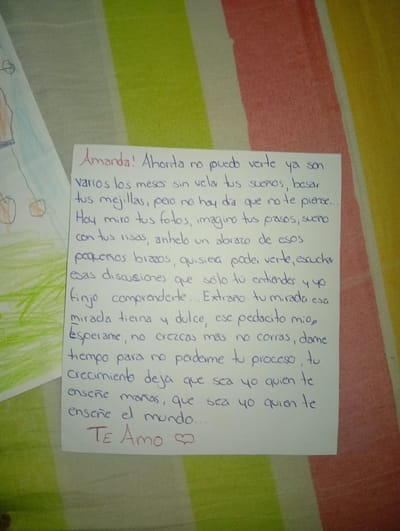 Amanda! Ahorita no puedo verte ya son
varios los meses sin velar tus sueños, besar
tus mejillas, pero no hay día que no te piense...
Hoy miro tus fotos, imagino tus pasos, sueño
con tus risas, anhelo un abrazo de esos
pequeños brazos, quisiera poder verte, escuchar
esas discusiones que sólo tú entiendes y yo
finjo comprenderte... Extraño tu mirada esa
mirada tierna y dulce, ese pedacito mio,
Esperame, no crezcas más no corras, dame
tiempo para no perderme tu proceso, tu
crecimiento deja que sea yo quien te
enseñe mañas, que sea yo quien te
enseñe el mundo...
TE AMO